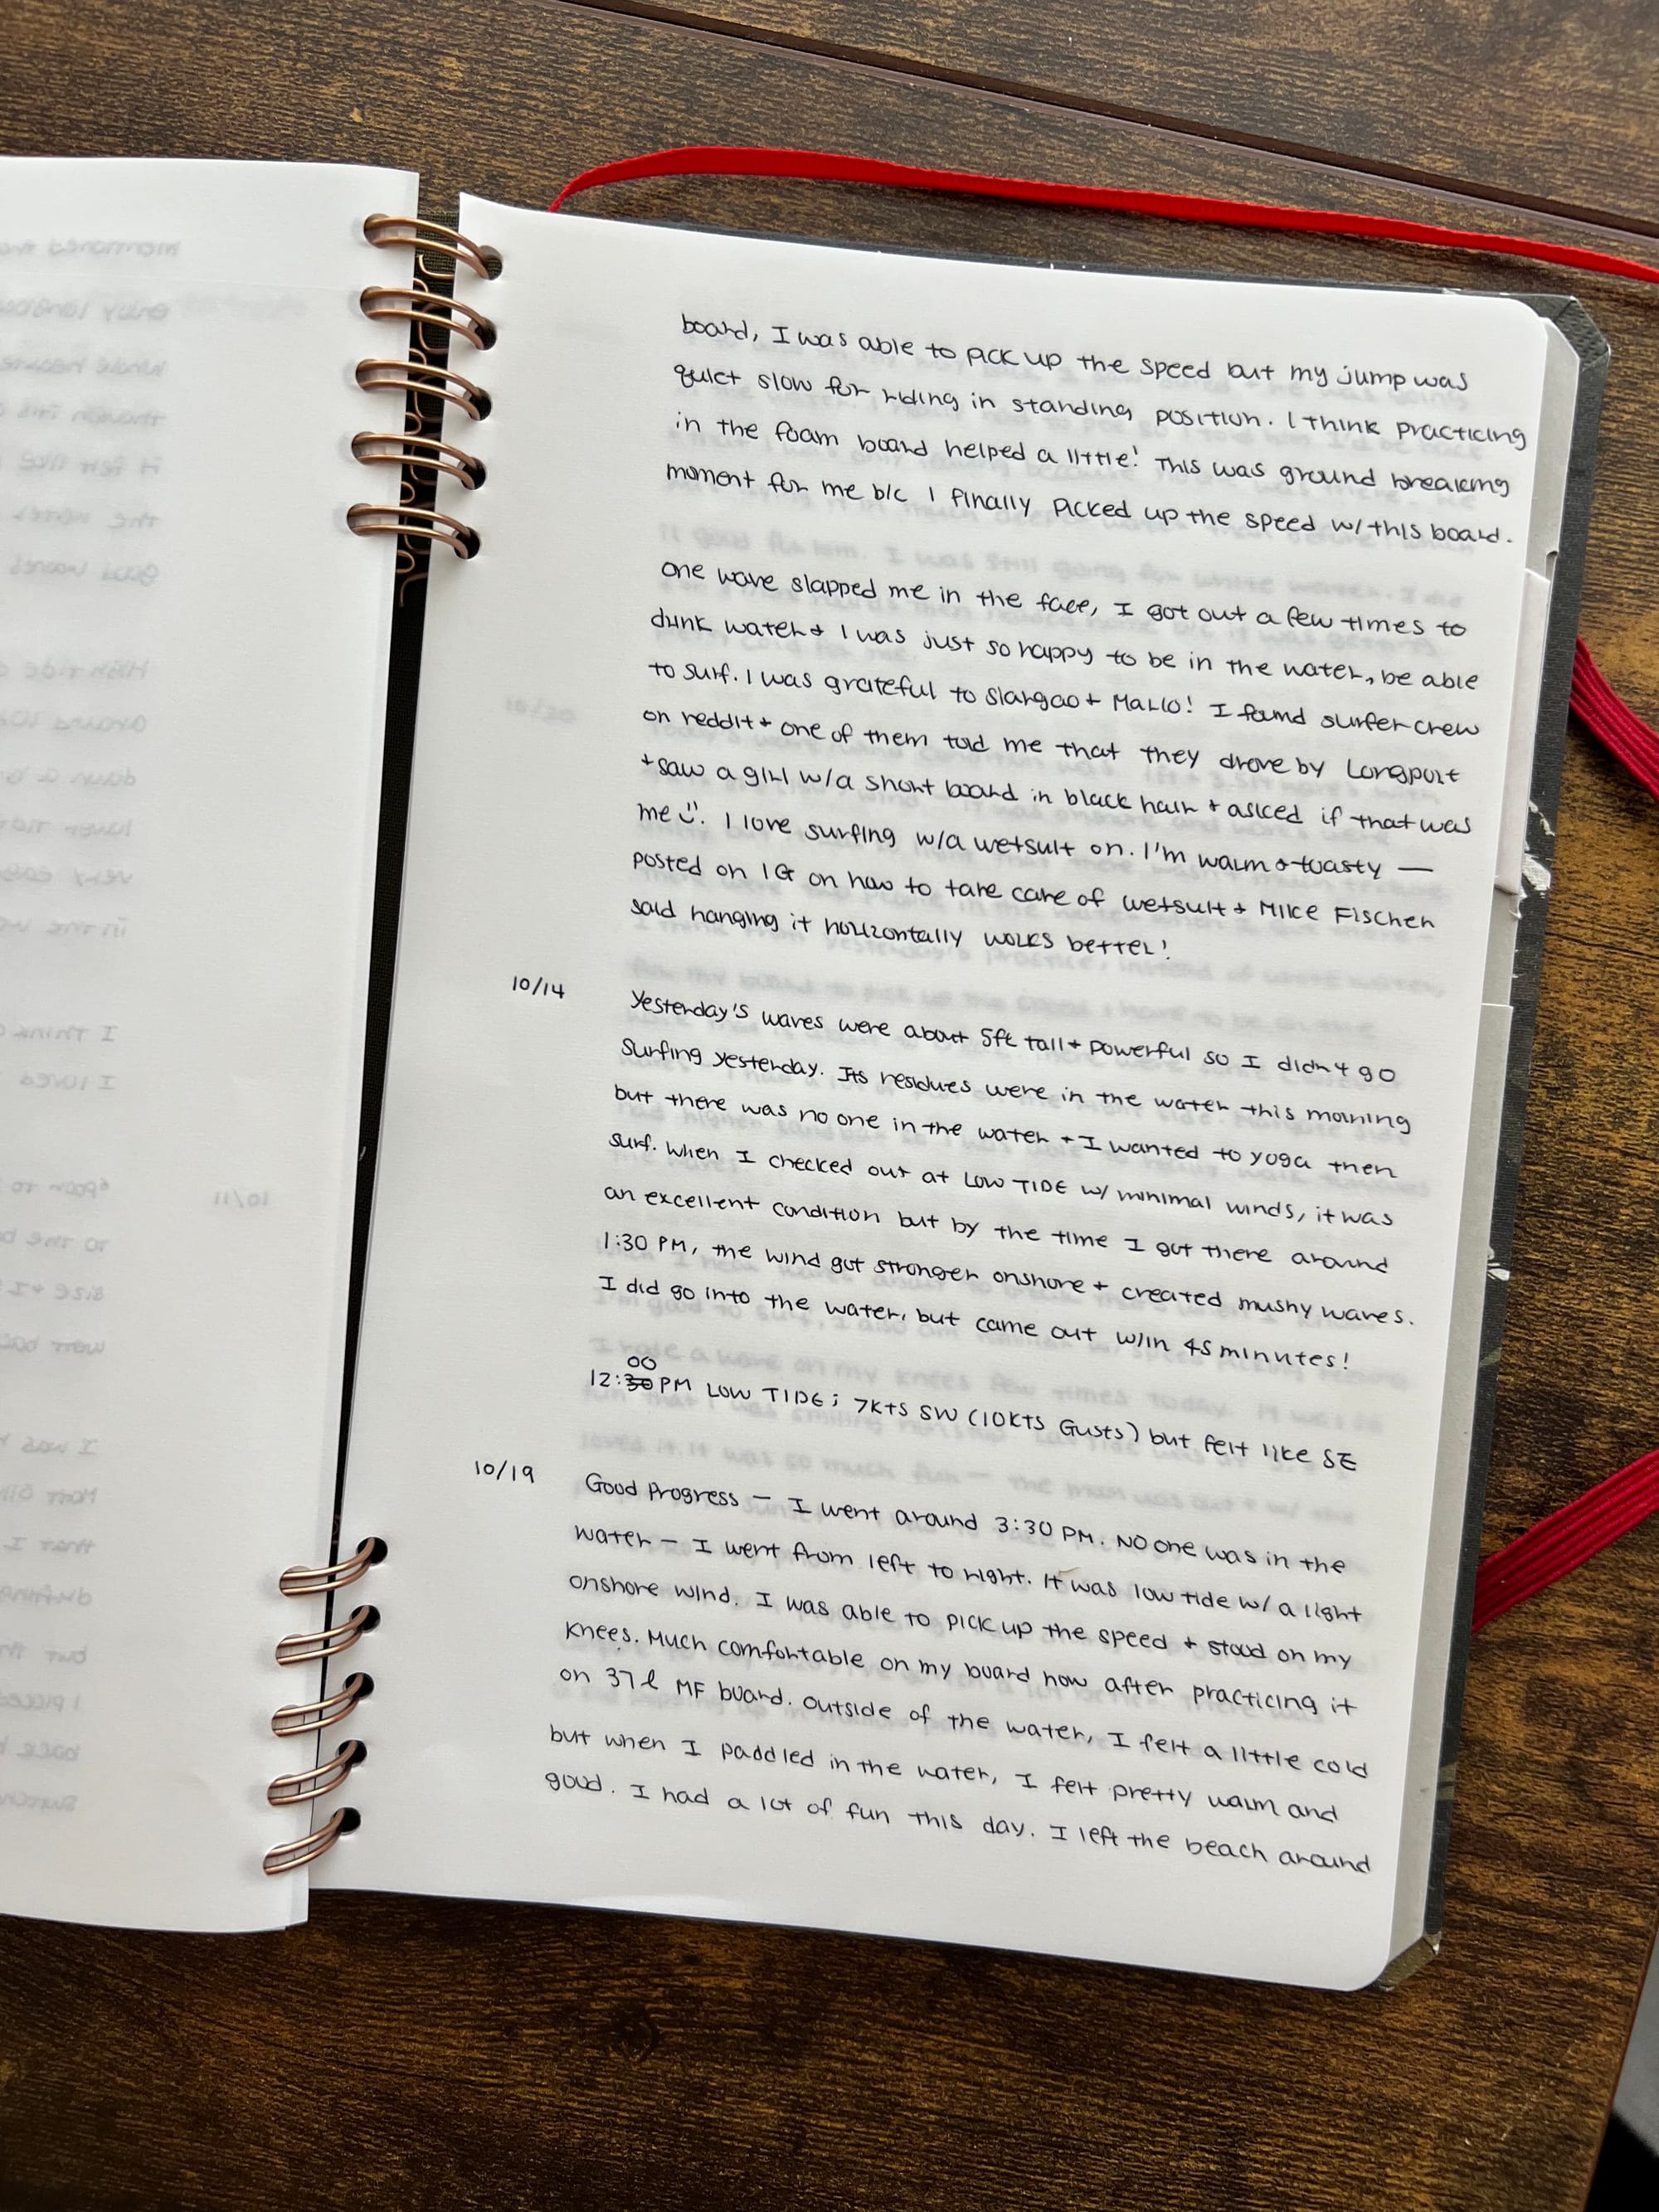 board, I was able to pick up the speed but my jump was
quiet slow for riding in standing position. I think practicing
in the foam board helped a little! This was ground breaking
moment for me b/c I finally picked up the speed w/ this board.
One wave slapped me in the face, I got out a few times to
drink water + I was just so happy to be in the water, be able
to surf. I was grateful to Siargao + Marlo! I found surfer crew
on reddit + one of them told me that they drove by Longport
+ saw a girl w/a short board in black hair + asked if that was
me :). I love surfing w/a wetsuit on. I'm warm + toasty —
posted on IG on how to take care of wetsuit + Mike Fischer
said hanging it horizontally works better!
10/14 Yesterday's waves were about 5ft tall + powerful so I didn't go
surfing yesterday. Its residues were in the water this morning
but there was no one in the water + I wanted to yoga then
surf. When I checked out at LOW TIDE w/ minimal winds, it was
an excellent condition but by the time I got there around
1:30 PM, the wind got stronger onshore + created mushy waves.
I did go into the water, but came out w/in 45 minutes!
12:00 PM LOW TIDE; 7KTS SW (10KTS Gusts) but felt like SE
10/19 Good Progress — I went around 3:30 PM. NO one was in the
water — I went from left to right. It was low tide w/ a light
onshore wind. I was able to pick up the speed + stood on my
knees. Much comfortable on my board now after practicing it
on 37l MF board. Outside of the water, I felt a little cold
but when I paddled in the water, I felt pretty warm and
good. I had a lot of fun this day. I left the beach around